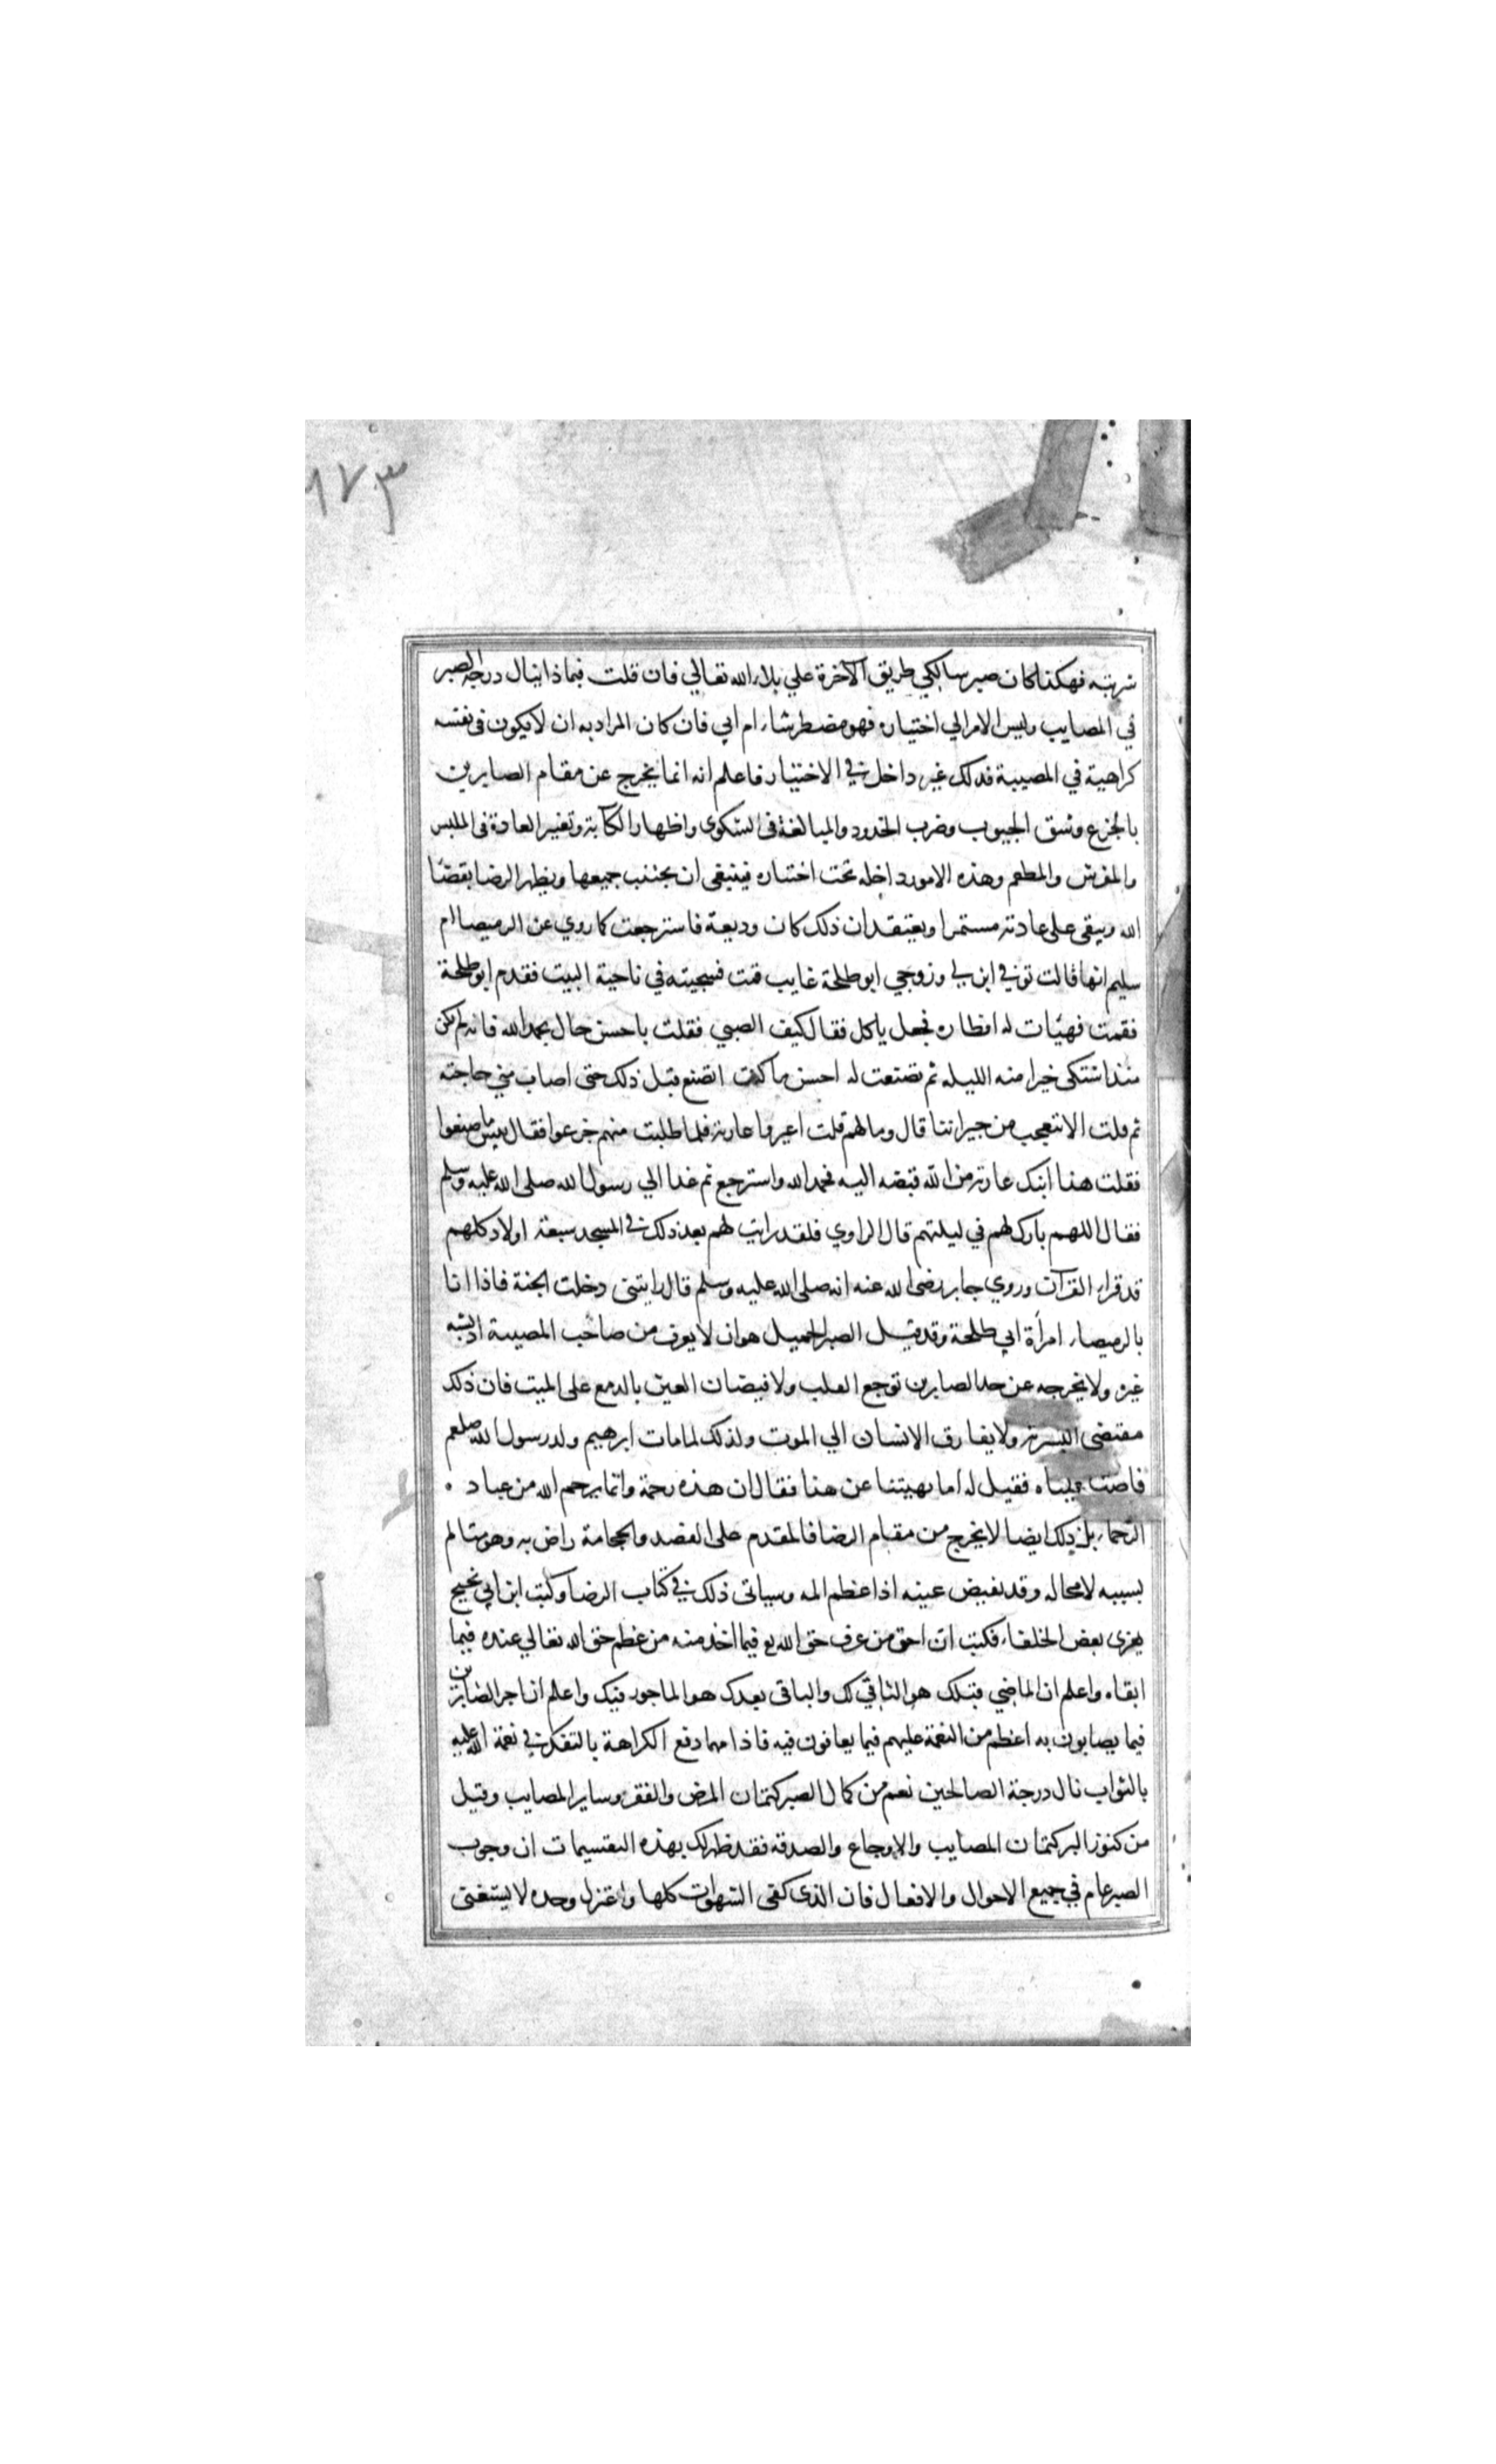 ١٧٣
شربته فهكذا كان صبر سالكي طريق الآخرة علي بلاء الله تعالي فان قلت فبماذا ينال درجة الصبر
في المصايب وليس الامر الي اختياره فهو مضطر شاء ام ابي فان كان المراد به ان لا يكون فى نفسه
كراهية في المصيبة فذلك غير داخل في الاختيار فاعلم انه انما يخرج عن مقام الصابرين
بالجزع وشق الجيوب وضرب الخدود والمبالغة فى الشكوى واظهار الكآبة وتغيير العادة فى الملبس
والمفرش والمطعم وهذه الامور داخله تحت اختياره فينبغى ان يجتنب جميعها ويظهر الرضا بقضا
الله ويبقى على عادته مستمرا ويعتقد ان ذلك كان وديعة فاسترجعت كما روي عن الرميصا ام
سليم انها قالت توفي ابن لي وزوجي ابو طلحة غايب قمت فسجيته في ناحية البيت فقدم ابو طلحة
فقمت فهيات له افطاره فجعل ياكل فقال كيف الصبي فقلت باحسن حال بحمد الله فانه لم يكن
منذ اشتكى خيرا منه الليله ثم تصنعت له احسن ما كنت اتصنع قبل ذلك حتى اصاب مني حاجته
ثم قلت الا تتعجب من جيراننا قال وما لهم قلت اعيروا عارية فلما طلبت منهم جزعوا فقال بيس ما صنعوا
فقلت هذا ابنك عارية من الله قبضه اليه فحمد الله واسترجع ثم غدا الي رسول الله صلى الله عليه وسلم
فقال اللهم بارك لهم في ليلتهم قال الراوي فلقد رايت لهم بعد ذلك في المسجد سبعة اولاد كلهم
قد قراء القرآن وروي جابر رضى الله عنه انه صلى الله عليه وسلم قال رايتنى دخلت الجنة فاذا انا
بالرميصاء امرأة ابي طلحة وقد قيل الصبر الجميل هو ان لا يعرف من صاحب المصيبة اذ يشبه
غيره ولا يخرجه عن حد الصابرين توجع القلب ولا فيضان العين بالدمع على الميت فان ذلك
مقتضى البشرية ولا يفارق الانسان الي الموت ولذلك لما مات ابرهيم ولد رسول الله صلعم
فاضت عيناه فقيل له اما نهيتنا عن هذا فقال ان هذه رحمة وانما يرحم الله من عباد ه
الرحماء بل ذلك ايضا لا يخرج من مقام الرضا فالمقدم على الفصد والحجامة راض به وهو متالم
بسببه لا محاله وقد تفيض عينه اذا عظم المه وسياتى ذلك في كتاب الرضا وكتب ابن ابي نجيح
يعزى بعض الخلفاء فكتب ان احق من عرف حق الله تع فيما اخذ منه من عظم حق الله تعالي عنده فيما
ابقاه واعلم ان الماضي قبلك هو الباقي لك والباقى بعدك هو الماجور فيك واعلم ان اجر الصابرين
فيما يصابون به اعظم من النعمة عليهم فيما يعافون فيه فاذا مهما دفع الكراهة بالتفكر في نعمة الله عليه
بالثواب نال درجة الصالحين نعم من كمال الصبر كتمان المرض والفقر وساير المصايب وقيل
من كنوز البر كتمان المصايب والاوجاع والصدقه فقد ظهر لك بهذه التقسيمات ان وجوب
الصبر عام في جميع الاحوال والافعال فان الذى كفى الشهوات كلها واعتزل وحده لا يستغنى